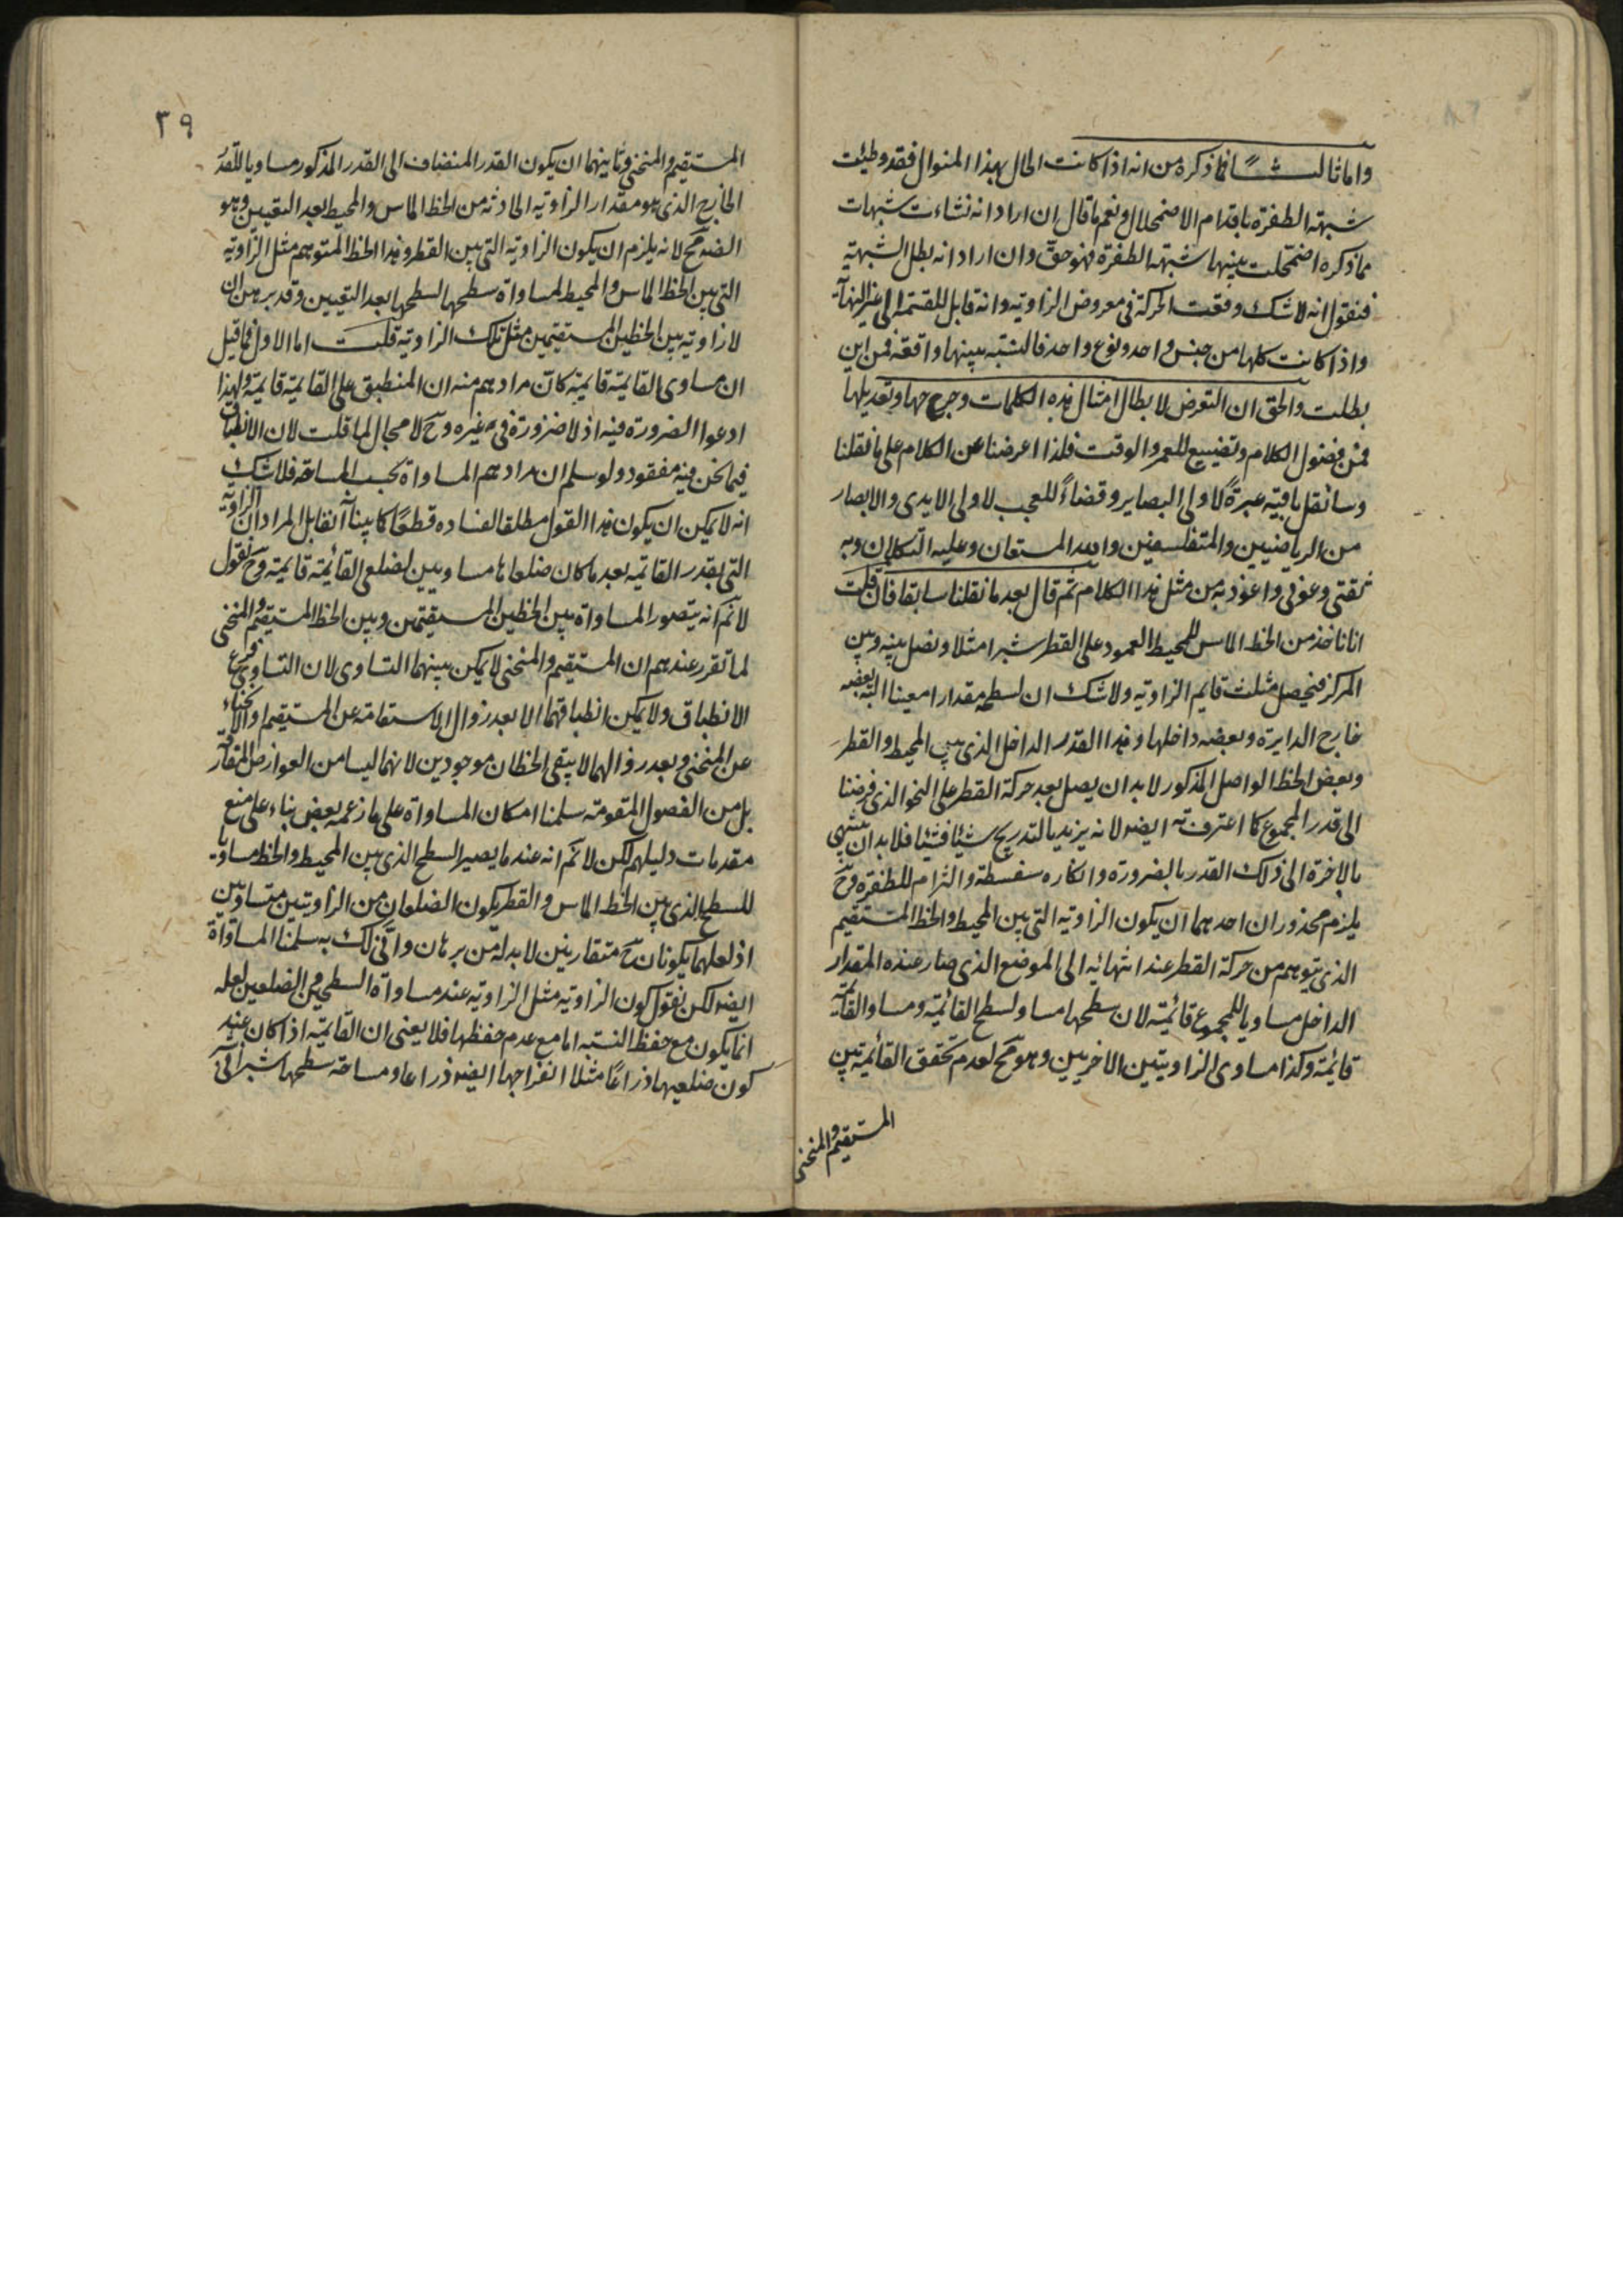 واما ثالثاً فما ذكره من انه اذا كانت الحال بهذا المنوال فقد وطيت
شبهة الطفرة باقدام الاضمحلال ونعم ما قال ان اراد انه نشاءت شبهات
مما ذكره اضمحلت بينها شبهة الطفرة فهو حق وان اراد انه بطل الشبهة
فنقول انه لا شك وقعت الحركة في معروض الزاوية وانه قابل للقسمة الى غير النهاية
واذا كانت كلها من جنس واحد ونوع واحد فالنسبة بينها واقعة فمن اين
بطلت والحق ان التعرض لابطال امثال هذه الكلمات وجرحها وتعديلها
فمن فضول الكلام وتضييع للعمر والوقت فلذا اعرضنا عن الكلام على ما نقلنا
وسانقل باقيه عبرةً لاولى البصاير وقضاءً للعجب لاولى الايدى والابصار
من الرياضيين والمتفلسفين والله المستعان وعليه التكلان وبه
ثقتى وعونى واعوذ به من مثل هذا الكلام ثم قال بعد ما نقلنا سابقا فان قلت
انا ناخذ من الخط المماس للمحيط العمود على القطر شبرا مثلا ونصل بينه وبين
المركز فيحصل مثلث قايم الزاوية ولا شك ان لسطحه مقدارا معينا البتة بعضه
خارج الدايرة وبعضه داخلها وهذا القدر الداخل الذى بين المحيط والقطر
وبعض الخط الواصل المذكور لا بد ان يصل بعد حركة القطر على النحو الذى فرضنا
الى قدر المجموع كما اعترفت به ايضا لانه يزيد بالتدريج شيئا فشيئا فلا بد ان ينتهى
بالاخرة الى ذلك القدر بالضرورة وانكاره سفسطة والتزام للطفرة وح
يلزم محذوران احدهما ان يكون الزاوية التى بين المحيط والخط المستقيم
الذى يتوهم من حركة القطر عند انتهائه الى الموضع الذى صار عنده المقدار
الداخل مساويا للمجموع قائمة لان سطحها مساو لسطح القائمة ومساو القائمة
قائمة وكذا مساوى الزاويتين الاخريين وهو مح لعدم تحقق القائمة بين
المستقيم والمنحنى
٣٩
المستقيم والمنحنى وثانيهما ان يكون القدر المنضاف الى القدر المذكور مساويا للقدر
الخارج الذى هو مقدار الزاوية الحادثة من الخط المماس والمحيط بعد التعيين وهو
ايضا مح لانه يلزم ان يكون الزاوية التى بين القطر وهذا الخط المتوهم مثل الزاوية
التى بين الخط المماس والمحيط لمساواة سطحها لسطحها بعد التعيين وقد برهن ان
لا زاوية بين الخطين المستقيمين مثل تلك الزاوية قلت اما الاول فما قيل
ان مساوى القائمة قايمة كان مرادهم منه ان المنطبق على القايمة قايمة ولهذا
ادعوا الضرورة فيه اذ لا ضرورة فى غيره وح لا مجال لما قلت لان الانطباق
فيما نحن فيه مفقود ولو سلم ان مرادهم المساواة بحسب المساحة فلا شك
انه لا يمكن ان يكون هذا القول مطلقا لفساده قطعًا كما بينا آنفا بل المراد ان الزاوية
التى بقدر القائمة بعد ما كان ضلعاها مساويين لضلعى القائمة قايمة وح نقول
لا نم انه يتصور المساواة بين الخطين المستقيمين وبين الخط المستقيم والمنحنى
لما تقرر عندهم ان المستقيم والمنحنى لا يمكن بينهما التساوى لان التساوى فرع
الانطباق ولا يمكن انطباقهما الا بعد زوال الاستقامة عن المستقيم او الانحناء
عن المنحنى وبعد زوالهما لا يبقى الخطان موجودين لانهما ليسا من العوارض المفارقة
بل من الفصول المقومة سلمنا امكان المساواة على ما زعمه بعض بناء على منع
مقدمات دليلهم لكن لا نم انه عند ما يصير السطح الذى بين المحيط والخط مساويا
للسطح الذى بين الخط المماس والقطر يكون الضلعان من الزاويتين متساويين
اذ لعلهما يكونان ح متقاربين لا بد له من برهان وانى لك به سلمنا المساواة
ايضا لكن نقول كون الزاوية مثل الزاوية عند مساواة السطحين والضلعين لعله
انما يكون مع حفظ النسبة اما مع عدم حفظها فلا يعنى ان القائمة اذا كان عند
كون ضلعيها ذراعًا مثلا انفراجها ايضا ذراعا ومساحة سطحها شبرا فى